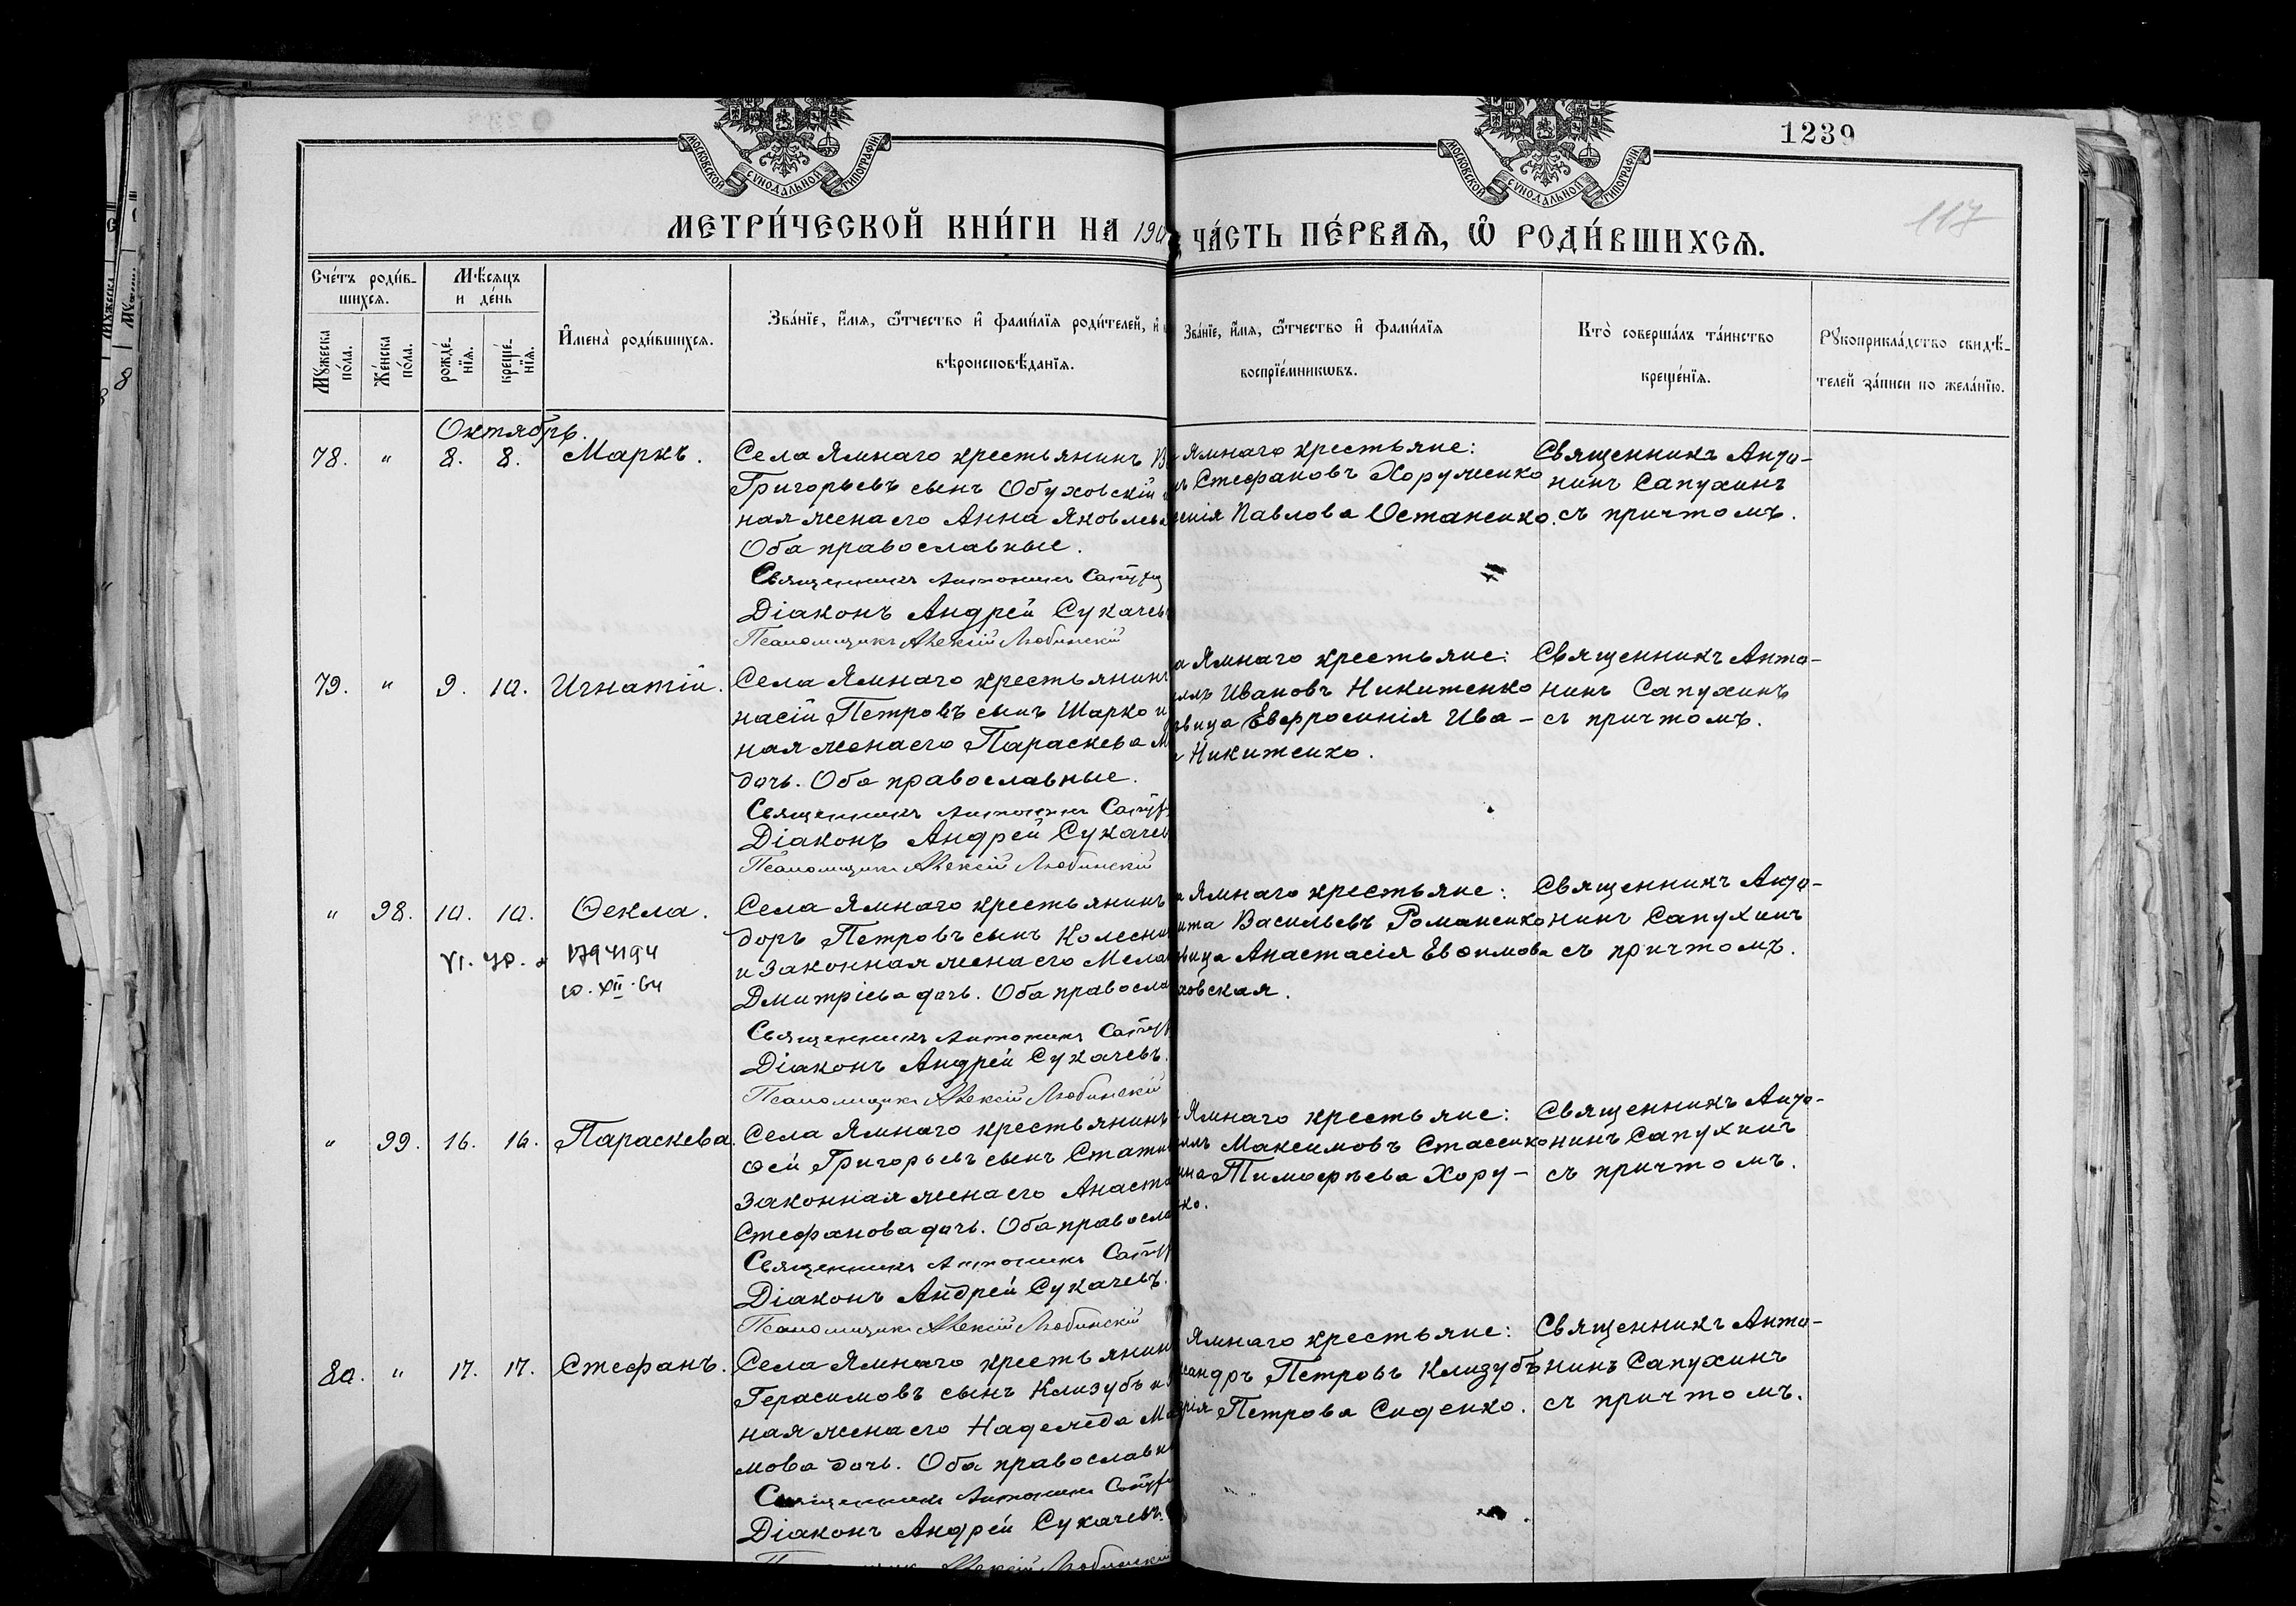 1239
117
МОСКОВСКОЙ СѴНОДАЛЬНОЙ ТИПОГРАФІИ
МОСКОВСКОЙ СѴНОДАЛЬНОЙ ТИПОГРАФІИ
МЕТРИ́ЧЕСКОЙ КНИ́ГИ НА 190
ЧА́СТЬ ПЕ́РВАѦ, Ѡ҆ РОДИ́ВШИХСѦ.
Сче́тъ роди́в-
шихсѧ.
Мѣ́сѧцъ
и де́нь
Мꙋ́жеска по́ла.
Же́нска по́ла.
рожде́-
нїѧ.
креще́-
нїѧ.
И҆мена̀ роди́вшихсѧ.
Зва́нїе, и҆́мѧ, ѻ҆́тчество и҆ фами́лїѧ роди́телей, и҆
вѣроисповѣ́данїѧ.
Зва́нїе, и҆́мѧ, ѻ҆́тчество и҆ фами́лїѧ
воспрїе́мникѡвъ.
Кто̀ соверша́лъ та́инство
креще́нїѧ.
Рꙋкоприкла́дство свидѣ́-
телей за́писи по жела́нїю.
Октябрь.
78. " 8. 8. Маркъ.
Села Ямнаго крестьянинъ
Григорьевъ сынъ Обуховскій
ная жена его Анна Яковлев
Оба православные.
Священникъ Антонинъ Сапух
Діаконъ Андрей Сукачев
Псаломщикъ Алексій Любинскій
Ямнаго крестьяне:
Стефановъ Хоруженко
енія Павлова Остапенко.
Священникъ Анто-
нинъ Сапухинъ
съ причтомъ.
79. " 9. 10. Игнатій.
Села Ямнаго крестьянинъ
насій Петровъ сынъ Шарко и
ная жена его Параскева М
дочь. Оба православные.
Священникъ Антонинъ Сапух
Діаконъ Андрей Сукачев
Псаломщикъ Алексій Любинскій
а Ямнаго крестьяне:
илъ Ивановъ Никитенко
вица Евфросинія Ива-
Никитенко.
Священникъ Анто-
нинъ Сапухинъ
съ причтомъ.
" 98. 10. 10. Ѳекла.
10.XII.64
Села Ямнаго крестьянинъ
доръ Петровъ сынъ Колесни
и законная жена его Мела
Дмитріева дочь. Оба правосла
Священникъ Антонинъ Сапух
Діаконъ Андрей Сукачевъ.
Псаломщикъ Алексій Любинскій
а Ямнаго крестьяне:
ита Васильевъ Романенко
вица Анастасія Евѳимова
ховская.
Священникъ Анто-
нинъ Сапухинъ
съ причтомъ.
" 99. 16. 16. Параскева.
Села Ямнаго крестьянинъ
ѳей Григорьевъ сынъ Стати
законная жена его Анаста
Стефанова дочь. Оба правосла
Священникъ Антонинъ Сапух
Діаконъ Андрей Сукачевъ.
Псаломщикъ Алексій Любинскій
Ямнаго крестьяне:
илъ Максимовъ Стасенко
ина Тимофѣева Хору-
ко.
Священникъ Анто-
нинъ Сапухинъ
съ причтомъ.
80. " 17. 17. Стефанъ.
Села Ямнаго крестьянин
Герасимовъ сынъ Клизубъ и
ная жена его Надежда Ма
мова дочь. Оба православн
Священникъ Антонинъ Сапух
Діаконъ Андрей Сукачевъ.
Алексій Любинскій
Ямнаго крестьяне:
сандръ Петровъ Клизубъ
рія Петрова Сиденко.
Священникъ Анто-
нинъ Сапухинъ
съ причтомъ.